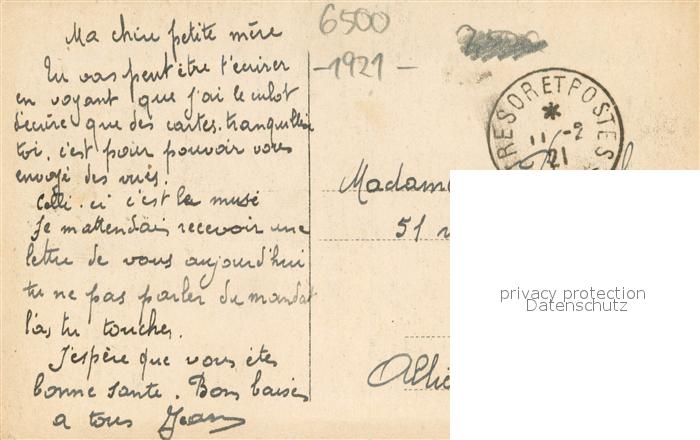 Ma chère petite mère
Tu vas peut être t'écrier
en voyant que j'ai le culot
d'écrire que des cartes. tranquillise
toi, c'est pour pouvoir vous
envoyé des vues.
Celle. ci c'est le musé
Je m'attendais recevoir une
lettre de vous aujourd'hui
tu ne pas parler du mandat
l'as tu toucher.
J'espère que vous êtes
bonne santé. Bons baisers
a tous Jean
6500
-1921-
TRESOR ET POSTES
*
11 -2
21
Madame
51
Allie
privacy protection
Datenschutz